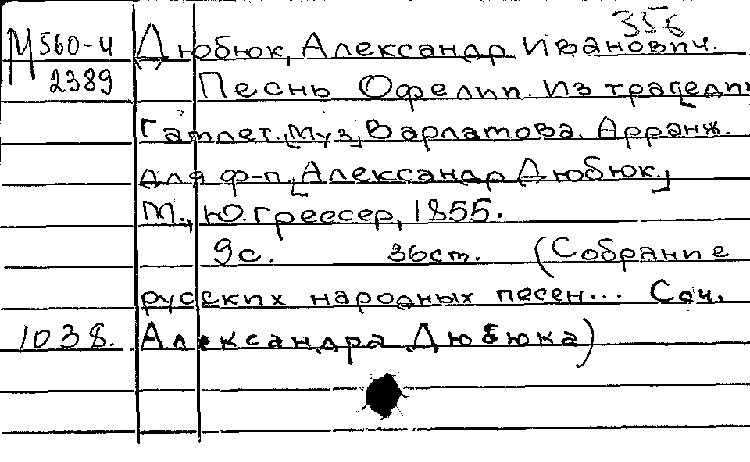 356
М 560-4 Дюбюк, Александр Иванович.
2389 Песнь Офелии. Из трагедии
Гамлет. [Муз] Варламова. Арранж.
для ф-п [Александр Дюбюк.]
М., Ю. Грессер, 1855.
9с. 36ст. (Собрание
русских народных песен... Соч.
1038. Александра Дюбюка)